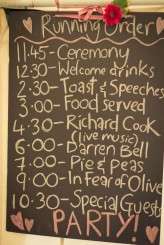 Running Order
11:45 - Ceremony
12:30 - Welcome drinks
2:30 - Toast & Speeches
3:00 - Food served
4:30 - Richard Cook
(live music)
6:00 - Darren Bell
7:00 - Pie & Peas
9:00 - In Fear of Olive
10:30 - Special Guests
PARTY!